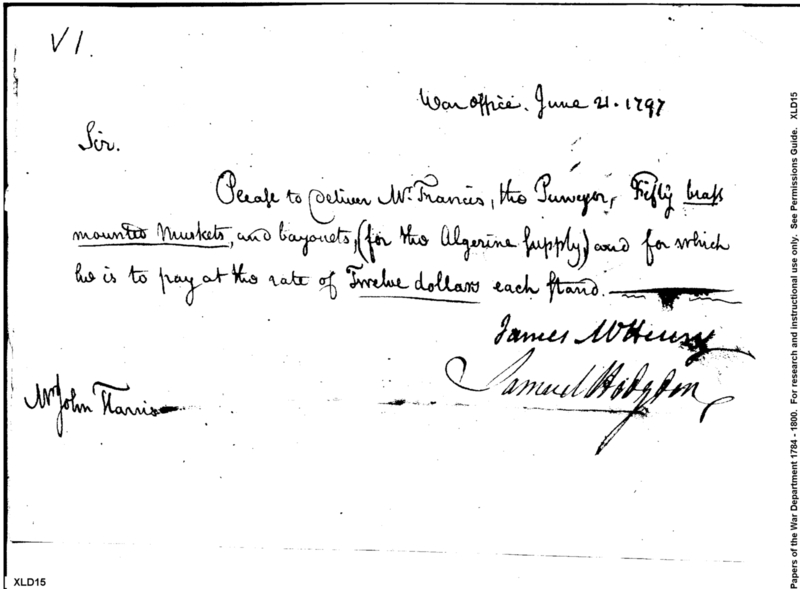 VI.
War office. June 21. 1797
Sir.
Please to deliver Mr. Francis, the Purveyor, Fifty brass
mounted Muskets, and bayonets, (for the Algerine supply,) and for which
he is to pay at the rate of Twelve dollars each stand.
James McHenry
Samuel Hodgdon
Mr John Harris
XLD15
Papers of the War Department 1784 - 1800. For research and instructional use only. See Permissions Guide. XLD15